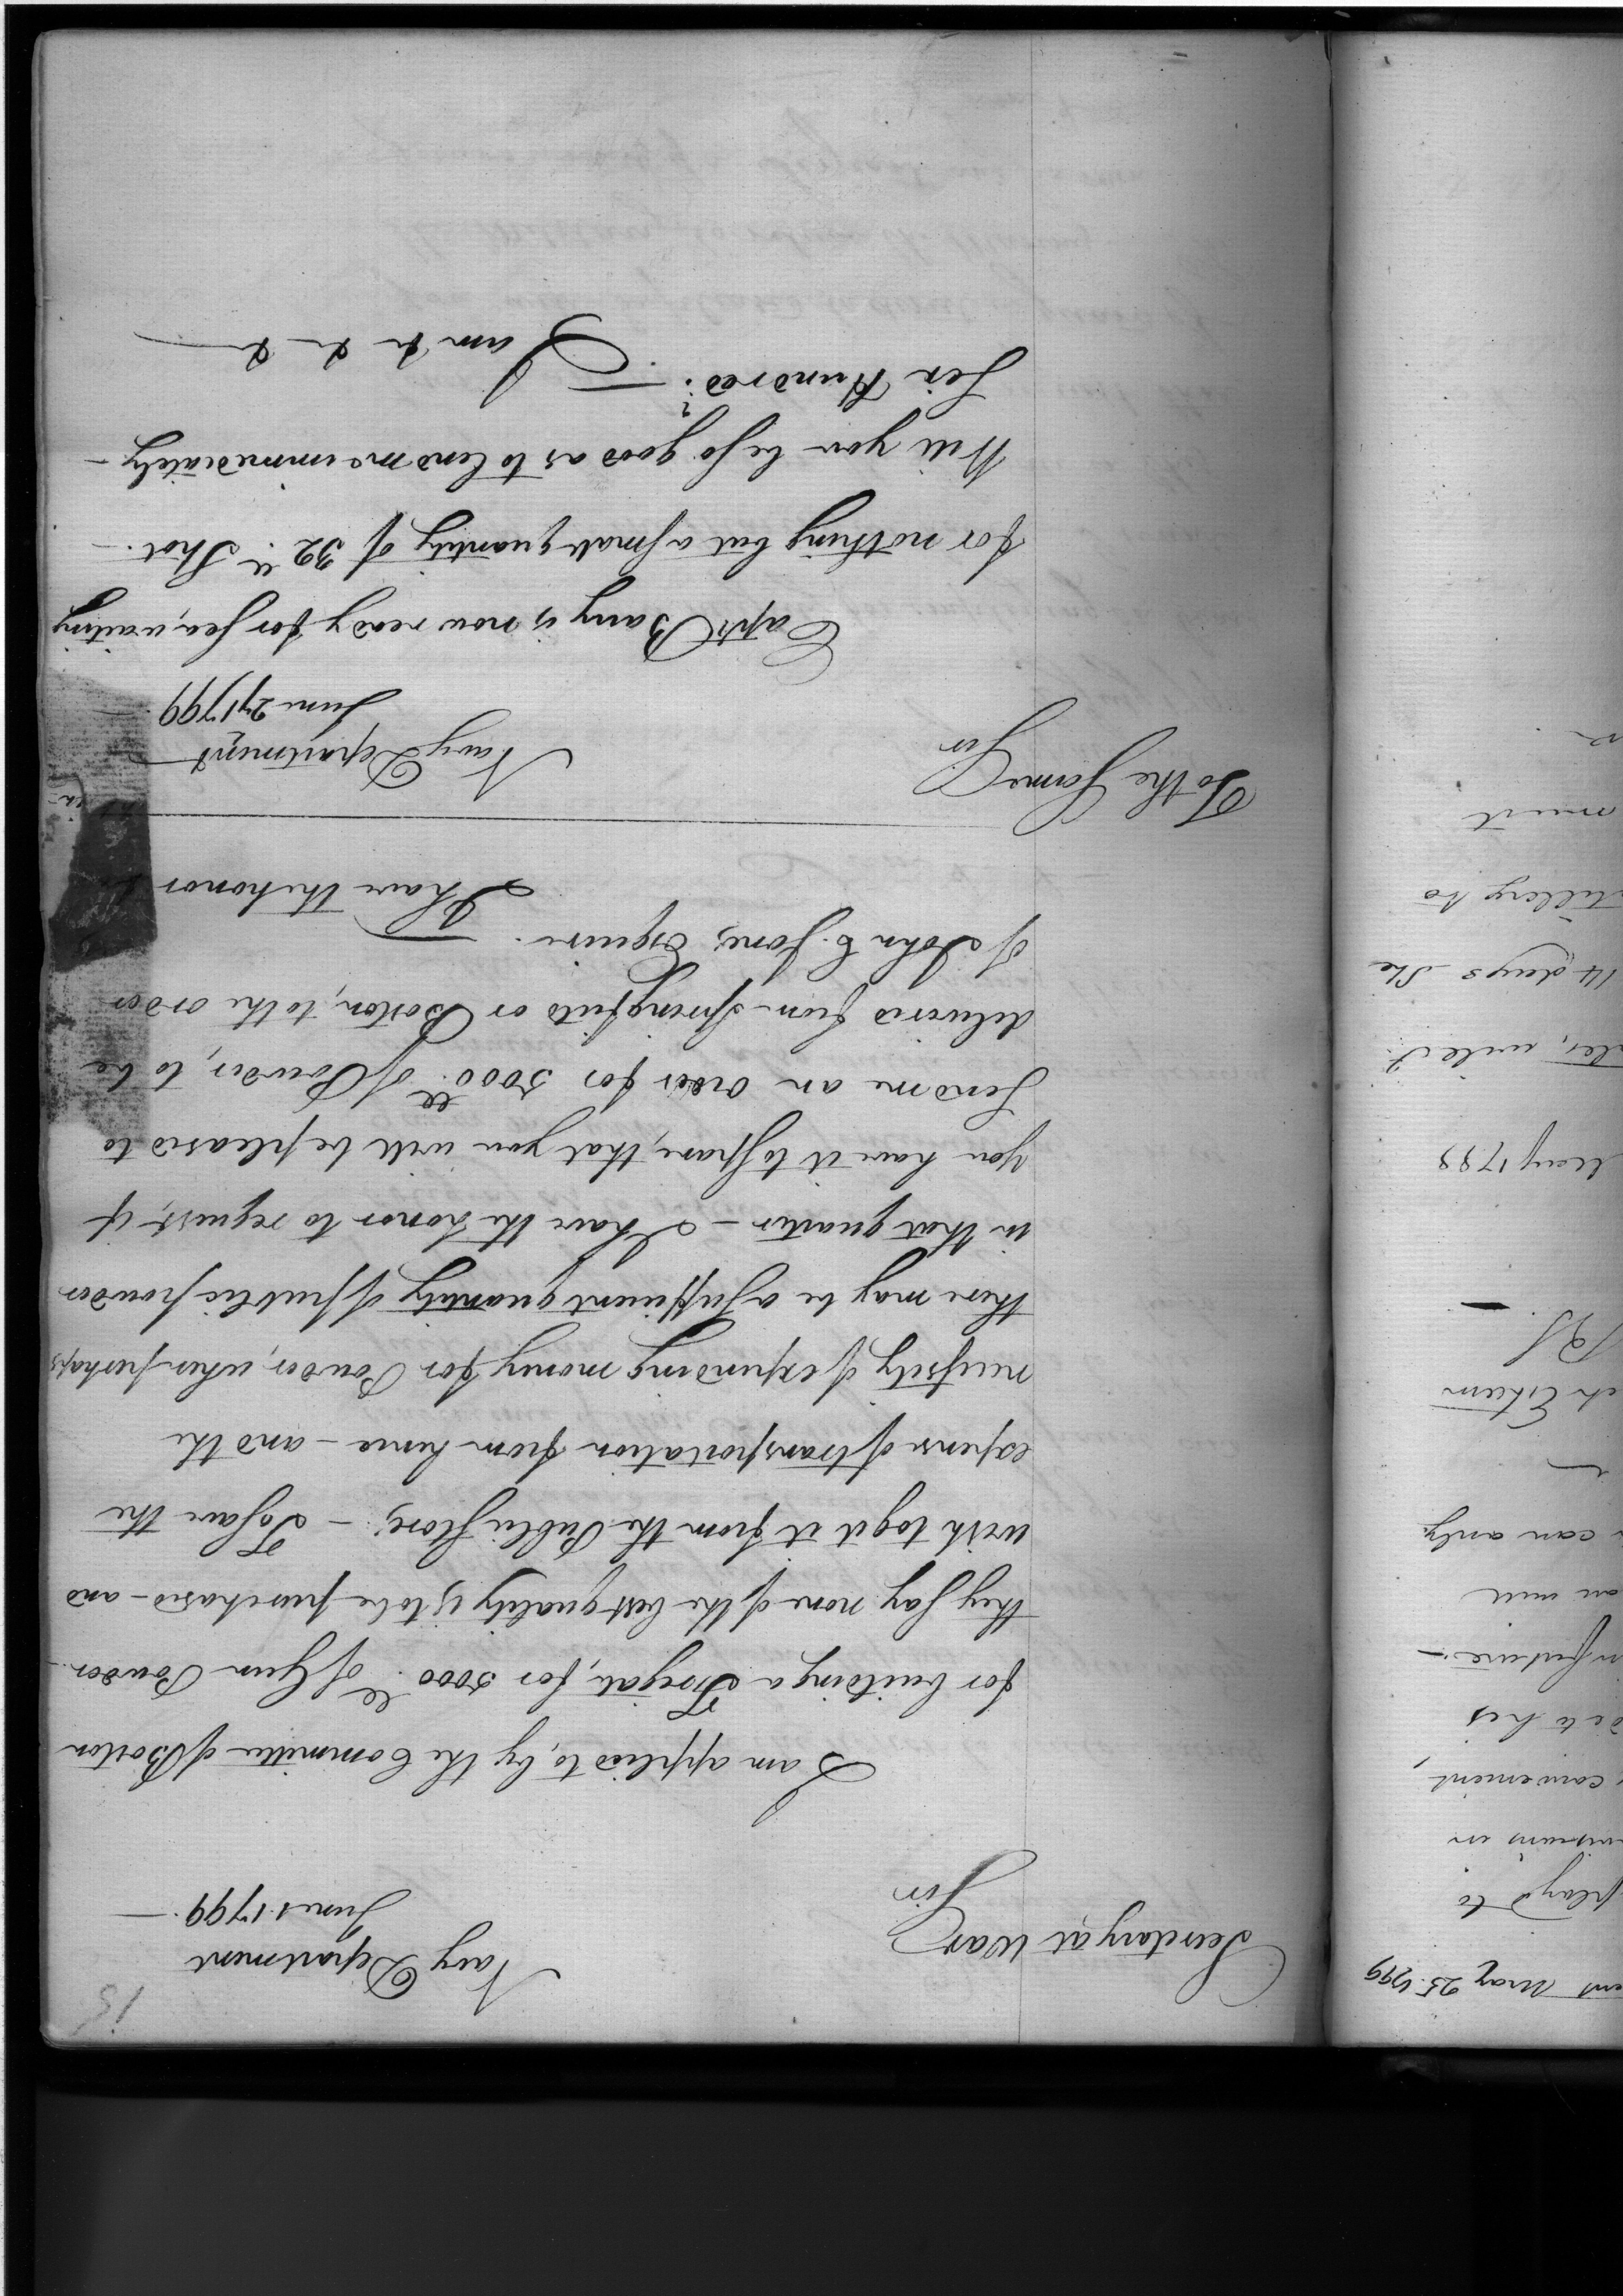 15
Navy Department
June 1 1799.
Secretary at War
Sir
I am applied to, by the Committee of Boston
for building a Frigate, for 5000 lb. of Gun Powder -
they say none of the best quality is to be purchased - and
wish to get it from the Public Stores - To save the
expense of transportation from hence - and the
necessity of expending money for Powder, when perhaps
there may be a sufficient quantity of public powder
in that quarter - I have the honor to request, if
you have it to spare, that you will be pleased to
send me an order for 5000 lb. of Powder, to be
delivered from Springfield or Boston, to the order
of John C. Jones, Esquire. —
I have the honor
To the Same
Sir
Navy Department
June 27 1799
Capt Barry is now ready for sea, waiting
for nothing but a small quantity of 32 lb. Shot. -
Will you be so good as to lend me immediately -
Six Hundred? —
I am & & &
ent May 25. 1799
play'd to
convenient
in future. -
an will
can only
ch Esteem
May 1798
14 days She
must